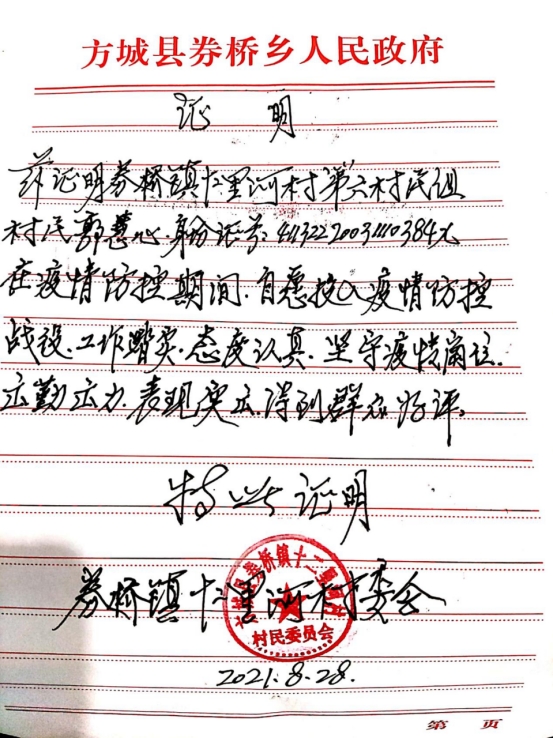 方城县券桥乡人民政府
证 明
兹证明券桥镇十二里河村第六村民组
村民郭慧心.身份证号:
在疫情防控期间.自愿投入疫情防控
战役.工作踏实.态度认真.坚守疫情岗位.
出勤出力.表现突出.得到群众好评。
特此证明
券桥镇十二里河村委会
方城县券桥镇十二里河村
村民委员会
2021.8.28.
第 页